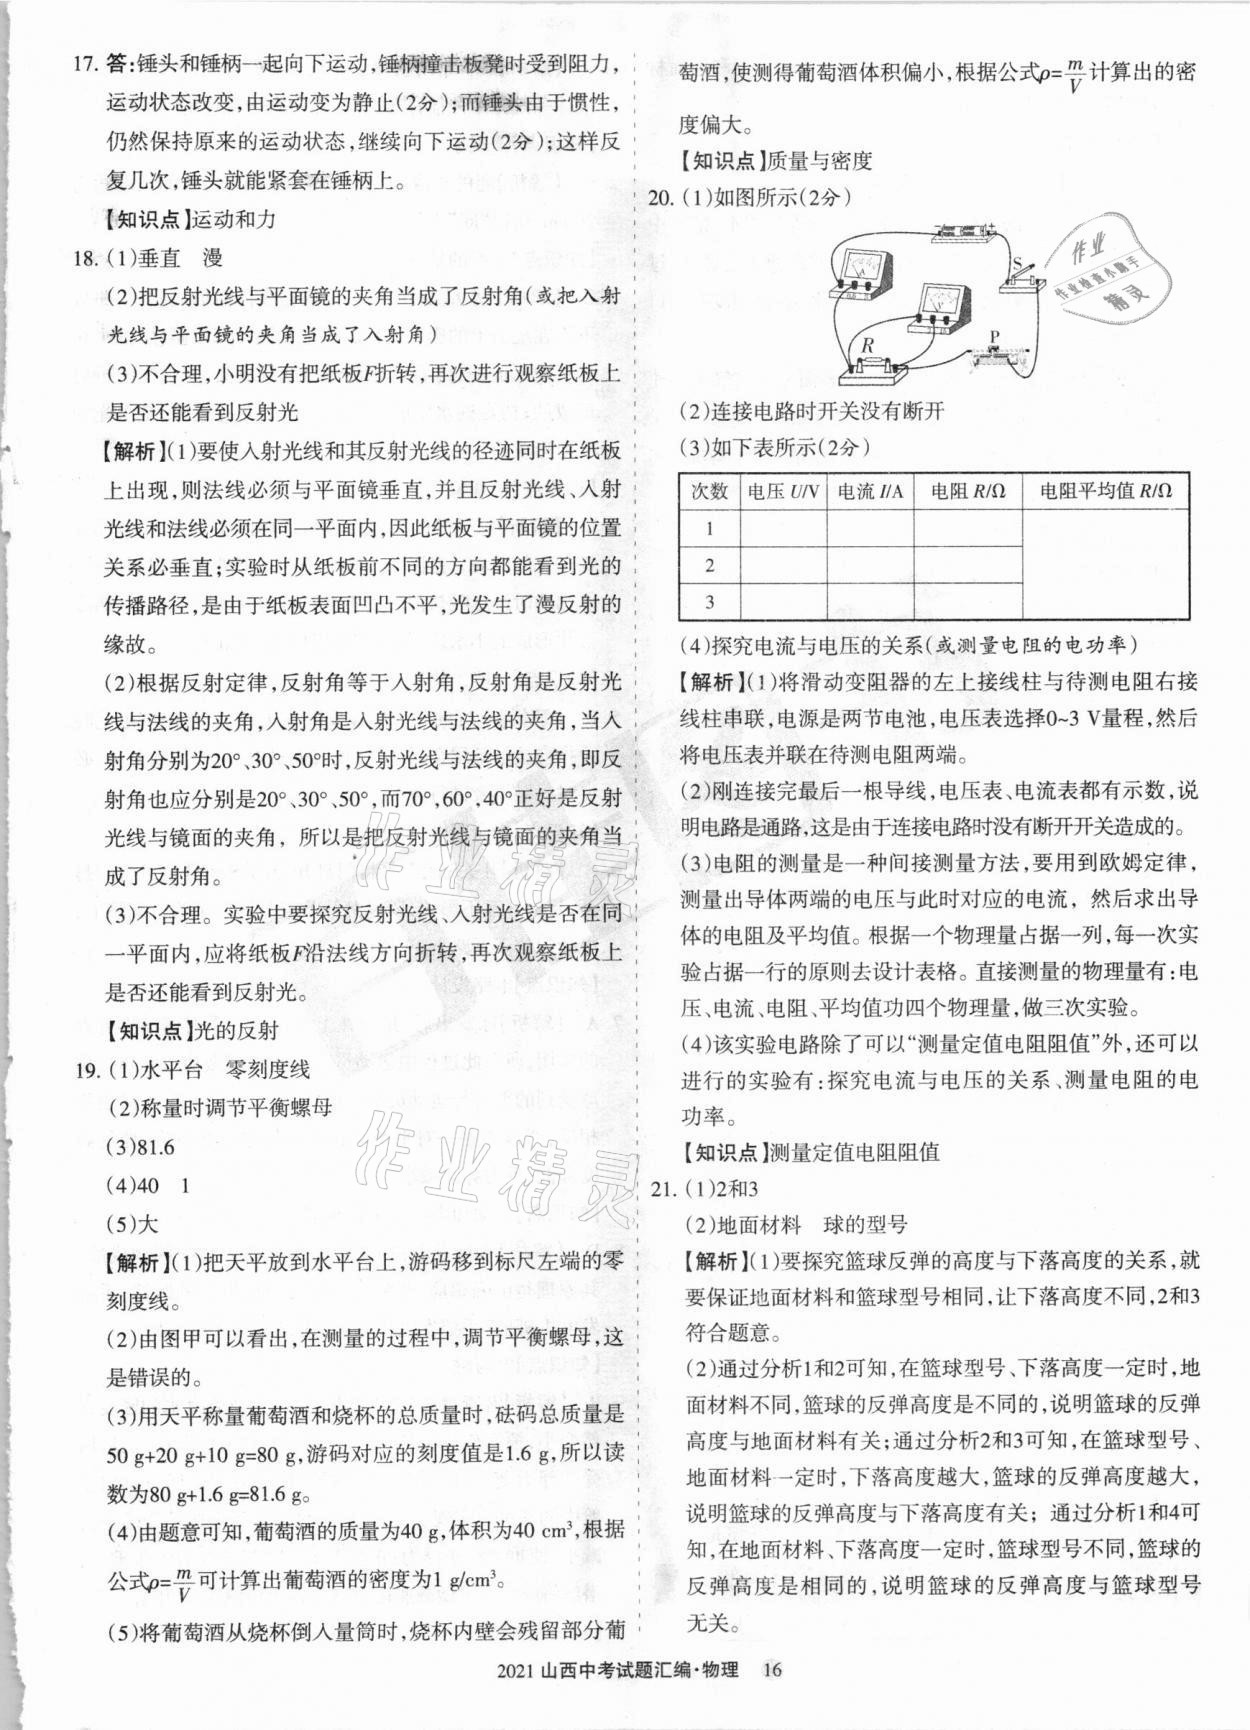 17. 答:锤头和锤柄一起向下运动,锤柄撞击板凳时受到阻力,
运动状态改变,由运动变为静止(2分);而锤头由于惯性,
仍然保持原来的运动状态,继续向下运动(2分);这样反
复几次,锤头就能紧套在锤柄上。
【知识点】运动和力
18. (1)垂直 漫
(2)把反射光线与平面镜的夹角当成了反射角(或把入射
光线与平面镜的夹角当成了入射角)
(3)不合理,小明没有把纸板F折转,再次进行观察纸板上
是否还能看到反射光
【解析】(1)要使入射光线和其反射光线的径迹同时在纸板
上出现,则法线必须与平面镜垂直,并且反射光线、入射
光线和法线必须在同一平面内,因此纸板与平面镜的位置
关系必垂直;实验时从纸板前不同的方向都能看到光的
传播路径,是由于纸板表面凹凸不平,光发生了漫反射的
缘故。
(2)根据反射定律,反射角等于入射角,反射角是反射光
线与法线的夹角,入射角是入射光线与法线的夹角,当入
射角分别为20°、30°、50°时,反射光线与法线的夹角,即反
射角也应分别是20°、30°、50°,而70°,60°,40°正好是反射
光线与镜面的夹角，所以是把反射光线与镜面的夹角当
成了反射角。
(3)不合理。实验中要探究反射光线、入射光线是否在同
一平面内,应将纸板F沿法线方向折转,再次观察纸板上
是否还能看到反射光。
【知识点】光的反射
19. (1)水平台 零刻度线
(2)称量时调节平衡螺母
(3)81.6
(4)40 1
(5)大
【解析】(1)把天平放到水平台上,游码移到标尺左端的零
刻度线。
(2)由图甲可以看出,在测量的过程中,调节平衡螺母,这
是错误的。
(3)用天平称量葡萄酒和烧杯的总质量时,砝码总质量是
50 g+20 g+10 g=80 g,游码对应的刻度值是1.6 g,所以读
数为80 g+1.6 g=81.6 g。
(4)由题意可知,葡萄酒的质量为40 g,体积为40 cm³,根据
公式ρ=m/V可计算出葡萄酒的密度为1 g/cm³。
(5)将葡萄酒从烧杯倒入量筒时,烧杯内壁会残留部分葡
萄酒,使测得葡萄酒体积偏小,根据公式ρ=m/V计算出的密
度偏大。
【知识点】质量与密度
20. (1)如图所示(2分)
A
V
S
R
P
(2)连接电路时开关没有断开
(3)如下表所示(2分)
次数 电压U/V 电流I/A 电阻R/Ω 电阻平均值R/Ω
1
2
3
(4)探究电流与电压的关系(或测量电阻的电功率)
【解析】(1)将滑动变阻器的左上接线柱与待测电阻右接
线柱串联,电源是两节电池,电压表选择0~3 V量程,然后
将电压表并联在待测电阻两端。
(2)刚连接完最后一根导线,电压表、电流表都有示数,说
明电路是通路,这是由于连接电路时没有断开开关造成的。
(3)电阻的测量是一种间接测量方法,要用到欧姆定律,
测量出导体两端的电压与此时对应的电流，然后求出导
体的电阻及平均值。根据一个物理量占据一列,每一次实
验占据一行的原则去设计表格。直接测量的物理量有:电
压、电流、电阻、平均值功四个物理量,做三次实验。
(4)该实验电路除了可以“测量定值电阻阻值”外,还可以
进行的实验有:探究电流与电压的关系、测量电阻的电
功率。
【知识点】测量定值电阻阻值
21. (1)2和3
(2)地面材料 球的型号
【解析】(1)要探究篮球反弹的高度与下落高度的关系,就
要保证地面材料和篮球型号相同,让下落高度不同,2和3
符合题意。
(2)通过分析1和2可知,在篮球型号、下落高度一定时,地
面材料不同,篮球的反弹高度是不同的,说明篮球的反弹
高度与地面材料有关;通过分析2和3可知,在篮球型号、
地面材料一定时,下落高度越大,篮球的反弹高度越大,
说明篮球的反弹高度与下落高度有关；通过分析1和4可
知,在地面材料、下落高度一定时,篮球型号不同,篮球的
反弹高度是相同的,说明篮球的反弹高度与篮球型号
无关。
2021山西中考试题汇编·物理 16
作业
作业检查小助手
精灵
作业精灵
作业精灵